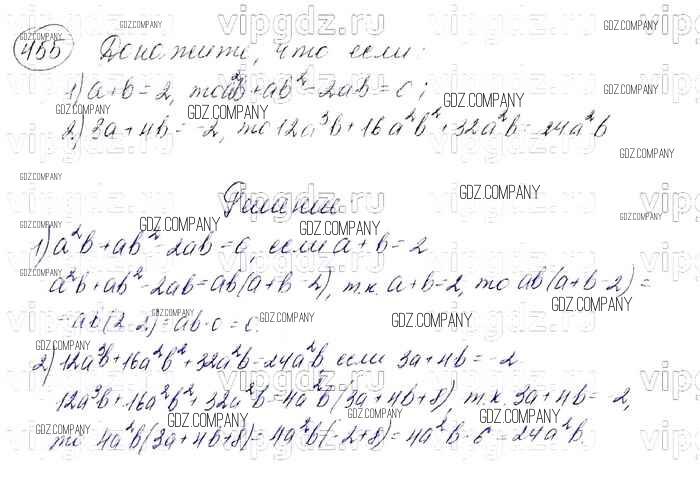 455 Докажите, что если:
1) a+b=2, то a²b+ab²-2ab=0;
2) 3a+4b=-2, то 12a³b+16a²b²+32a²b=24a²b
Решение
1) a²b+ab²-2ab=0, если a+b=2
a²b+ab²-2ab=ab(a+b-2), т.к. a+b=2, то ab(a+b-2)=
=ab(2-2)=ab·0=0.
2) 12a³b+16a²b²+32a²b=24a²b если 3a+4b=-2
12a³b+16a²b²+32a²b=4a²b(3a+4b+8), т.к. 3a+4b=-2,
то 4a²b(3a+4b+8)=4a²b(-2+8)=4a²b·6=24a²b.
vipgdz.ru
GDZ.COMPANY